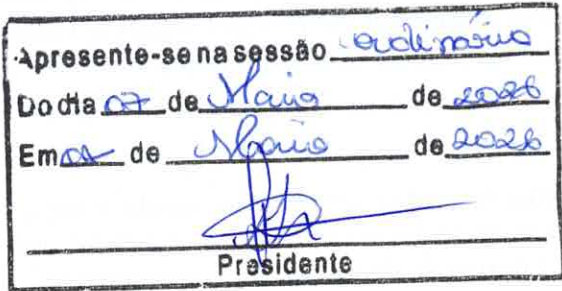 Apresente-se na sessão ordinária
Do dia 07 de Maio de 2026
Em de Maio de 2026
Presidente